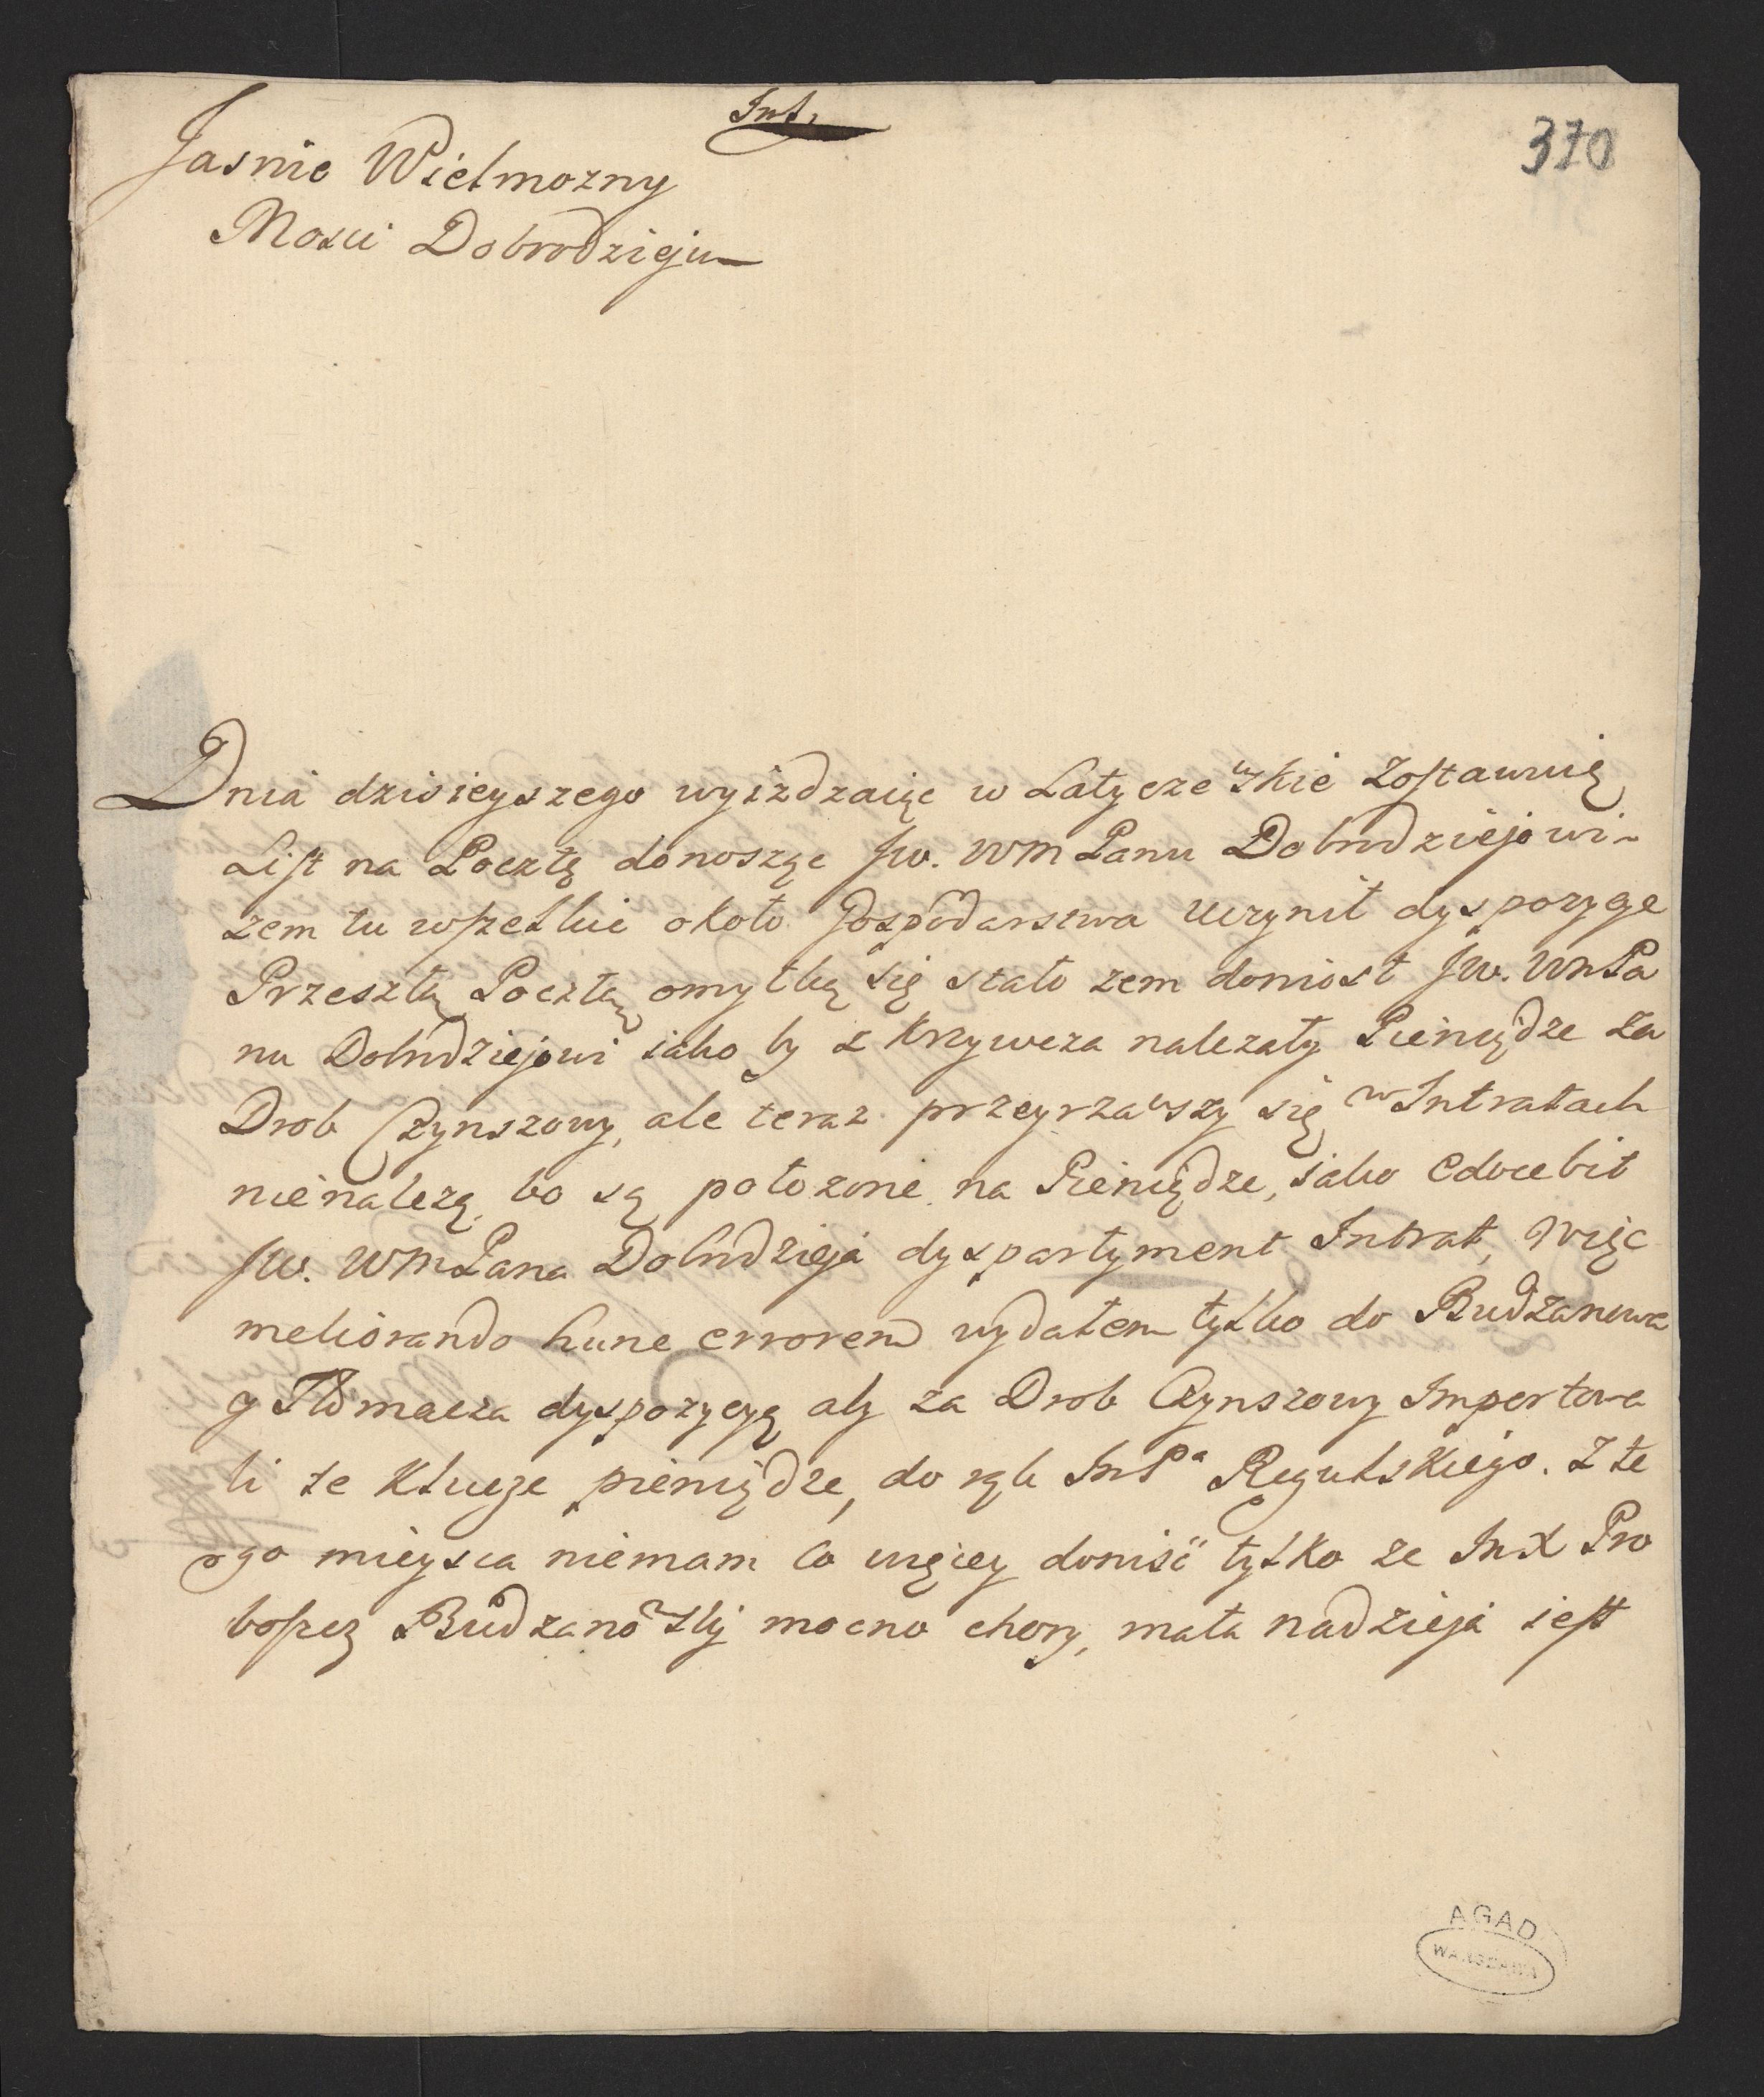 Int.
370
Jasnie Wielmozny
Mosci Dobrodzieju
Dnia dzisieyszego wyizdzaiąc w Latyczewskie Zostawuię
List na Pocztę donosząc Jw. WM Panu Dobrodziejowi
zem tu wszelkie około Gospodarstwa uczynił dyspozycye
Przeszłą Pocztą omyłką się stało zem doniosł Jw. WMPa
nu Dobrodziejowi iako by z Krzywcza nalezały Pieniądze za
Drob Czynszowy, ale teraz przeyrzawszy się w Intratach
nienalezą, bo są położone na Pieniądze, iako Edocebit
Jw. WMPana Dobrodzieja dyspartyment Intrat, Więc
meliorando hunc errorem wydałem tylko do Budzanowa
y Tłomacza dyspozycyą aby za Drob Czynszowy Importowa
li te Klucze pieniądze, do rąk ImPa Regulskiego. Z te
ogo mieysca niemam Co więcey doniść tylko ze ImX Pro
boszcz Budzanowsky mocno chory, mała nadzieja iest
AGAD
WARSZAWA